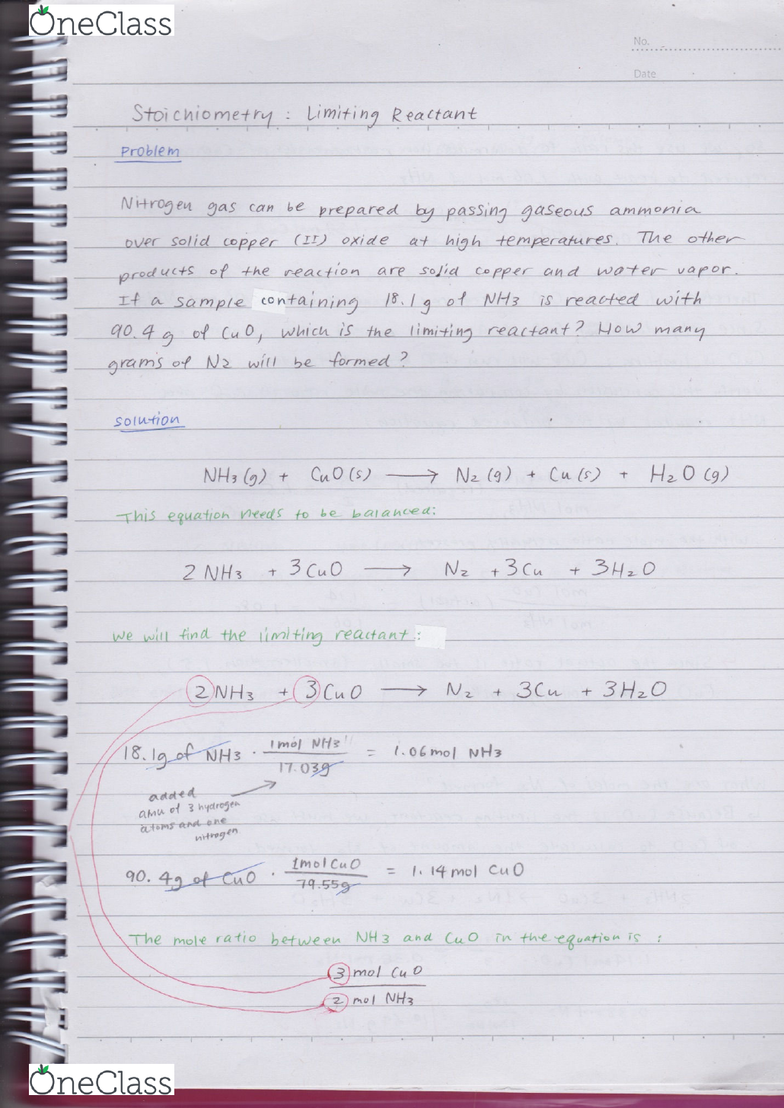 OneClass
No.
Date
Stoichiometry : Limiting Reactant
Problem
Nitrogen gas can be prepared by passing gaseous ammonia
over solid copper (II) oxide at high temperatures. The other
products of the reaction are solid copper and water vapor.
If a sample containing 18.1g of NH3 is reacted with
90.4 g of CuO, which is the limiting reactant? How many
grams of N2 will be formed?
solution
NH3(g) + CuO(s) ⟶ N2(g) + Cu(s) + H2O(g)
This equation needs to be balanced:
2 NH3 + 3CuO ⟶ N2 + 3Cu + 3H2O
We will find the limiting reactant:
2NH3 + 3CuO ⟶ N2 + 3Cu + 3H2O
18.1g of NH3 · 1mol NH3 / 17.03g = 1.06mol NH3
added
amu of 3 hydrogen
atoms and one
nitrogen
90.4g of CuO · 1molCuO / 79.55g = 1.14mol CuO
The mole ratio between NH3 and CuO in the equation is :
3 mol CuO
2 mol NH3
OneClass